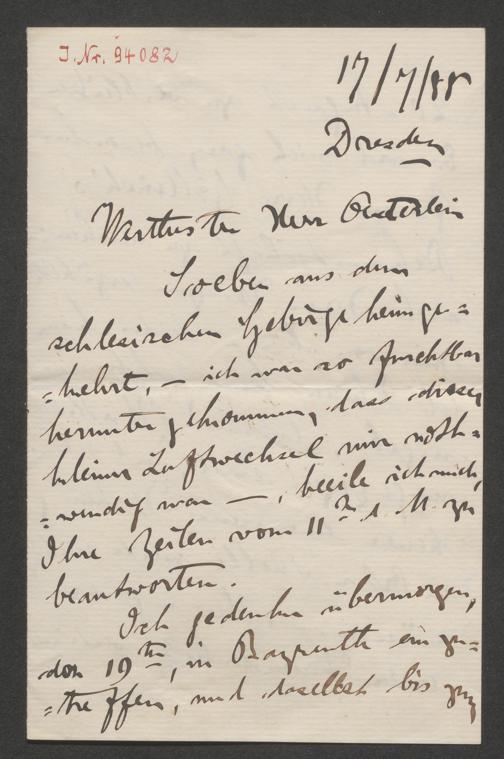 J. Nr. 94082
17/7/88
Dresden
Werthester Herr Oesterlein
Soeben aus dem
schlesischen Gebirge heimge=
=kehrt, – ich war so furchtbar
herunter gekommen, dass dieser
kleine Luftwechsel mir noth=
=wendig war –, beeile ich mich,
Ihre Zeilen vom 11ten d. M. zu
beantworten.
Ich gedenke übermorgen,
den 19ten, in Bayreuth einzu=
=treffen, und daselbst bis zum